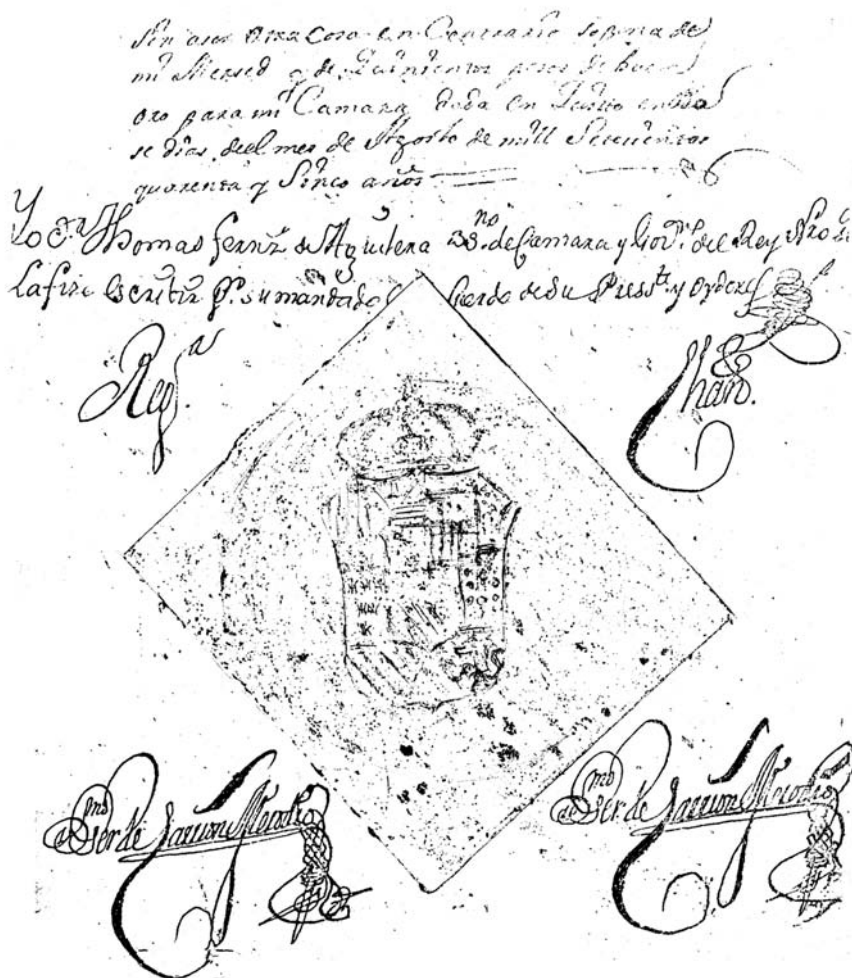 Sin aser otra Cosa en Contrario so pena de
mi Mersed y de Quinientos pesos de buen
oro para mi Camara dada en Quito en
se dias del mes de Agosto de mill Setecientos
quarenta y Sinco años
Yo Dn Thomas fernz de Aguilera SSno. de Camara y Govn. del Rey Nro Sr
La fize escrivir Pr. su mandado Cuerdo de Su Presste. y Oydores
Rega.
Chanr.
Ser de
Ser de